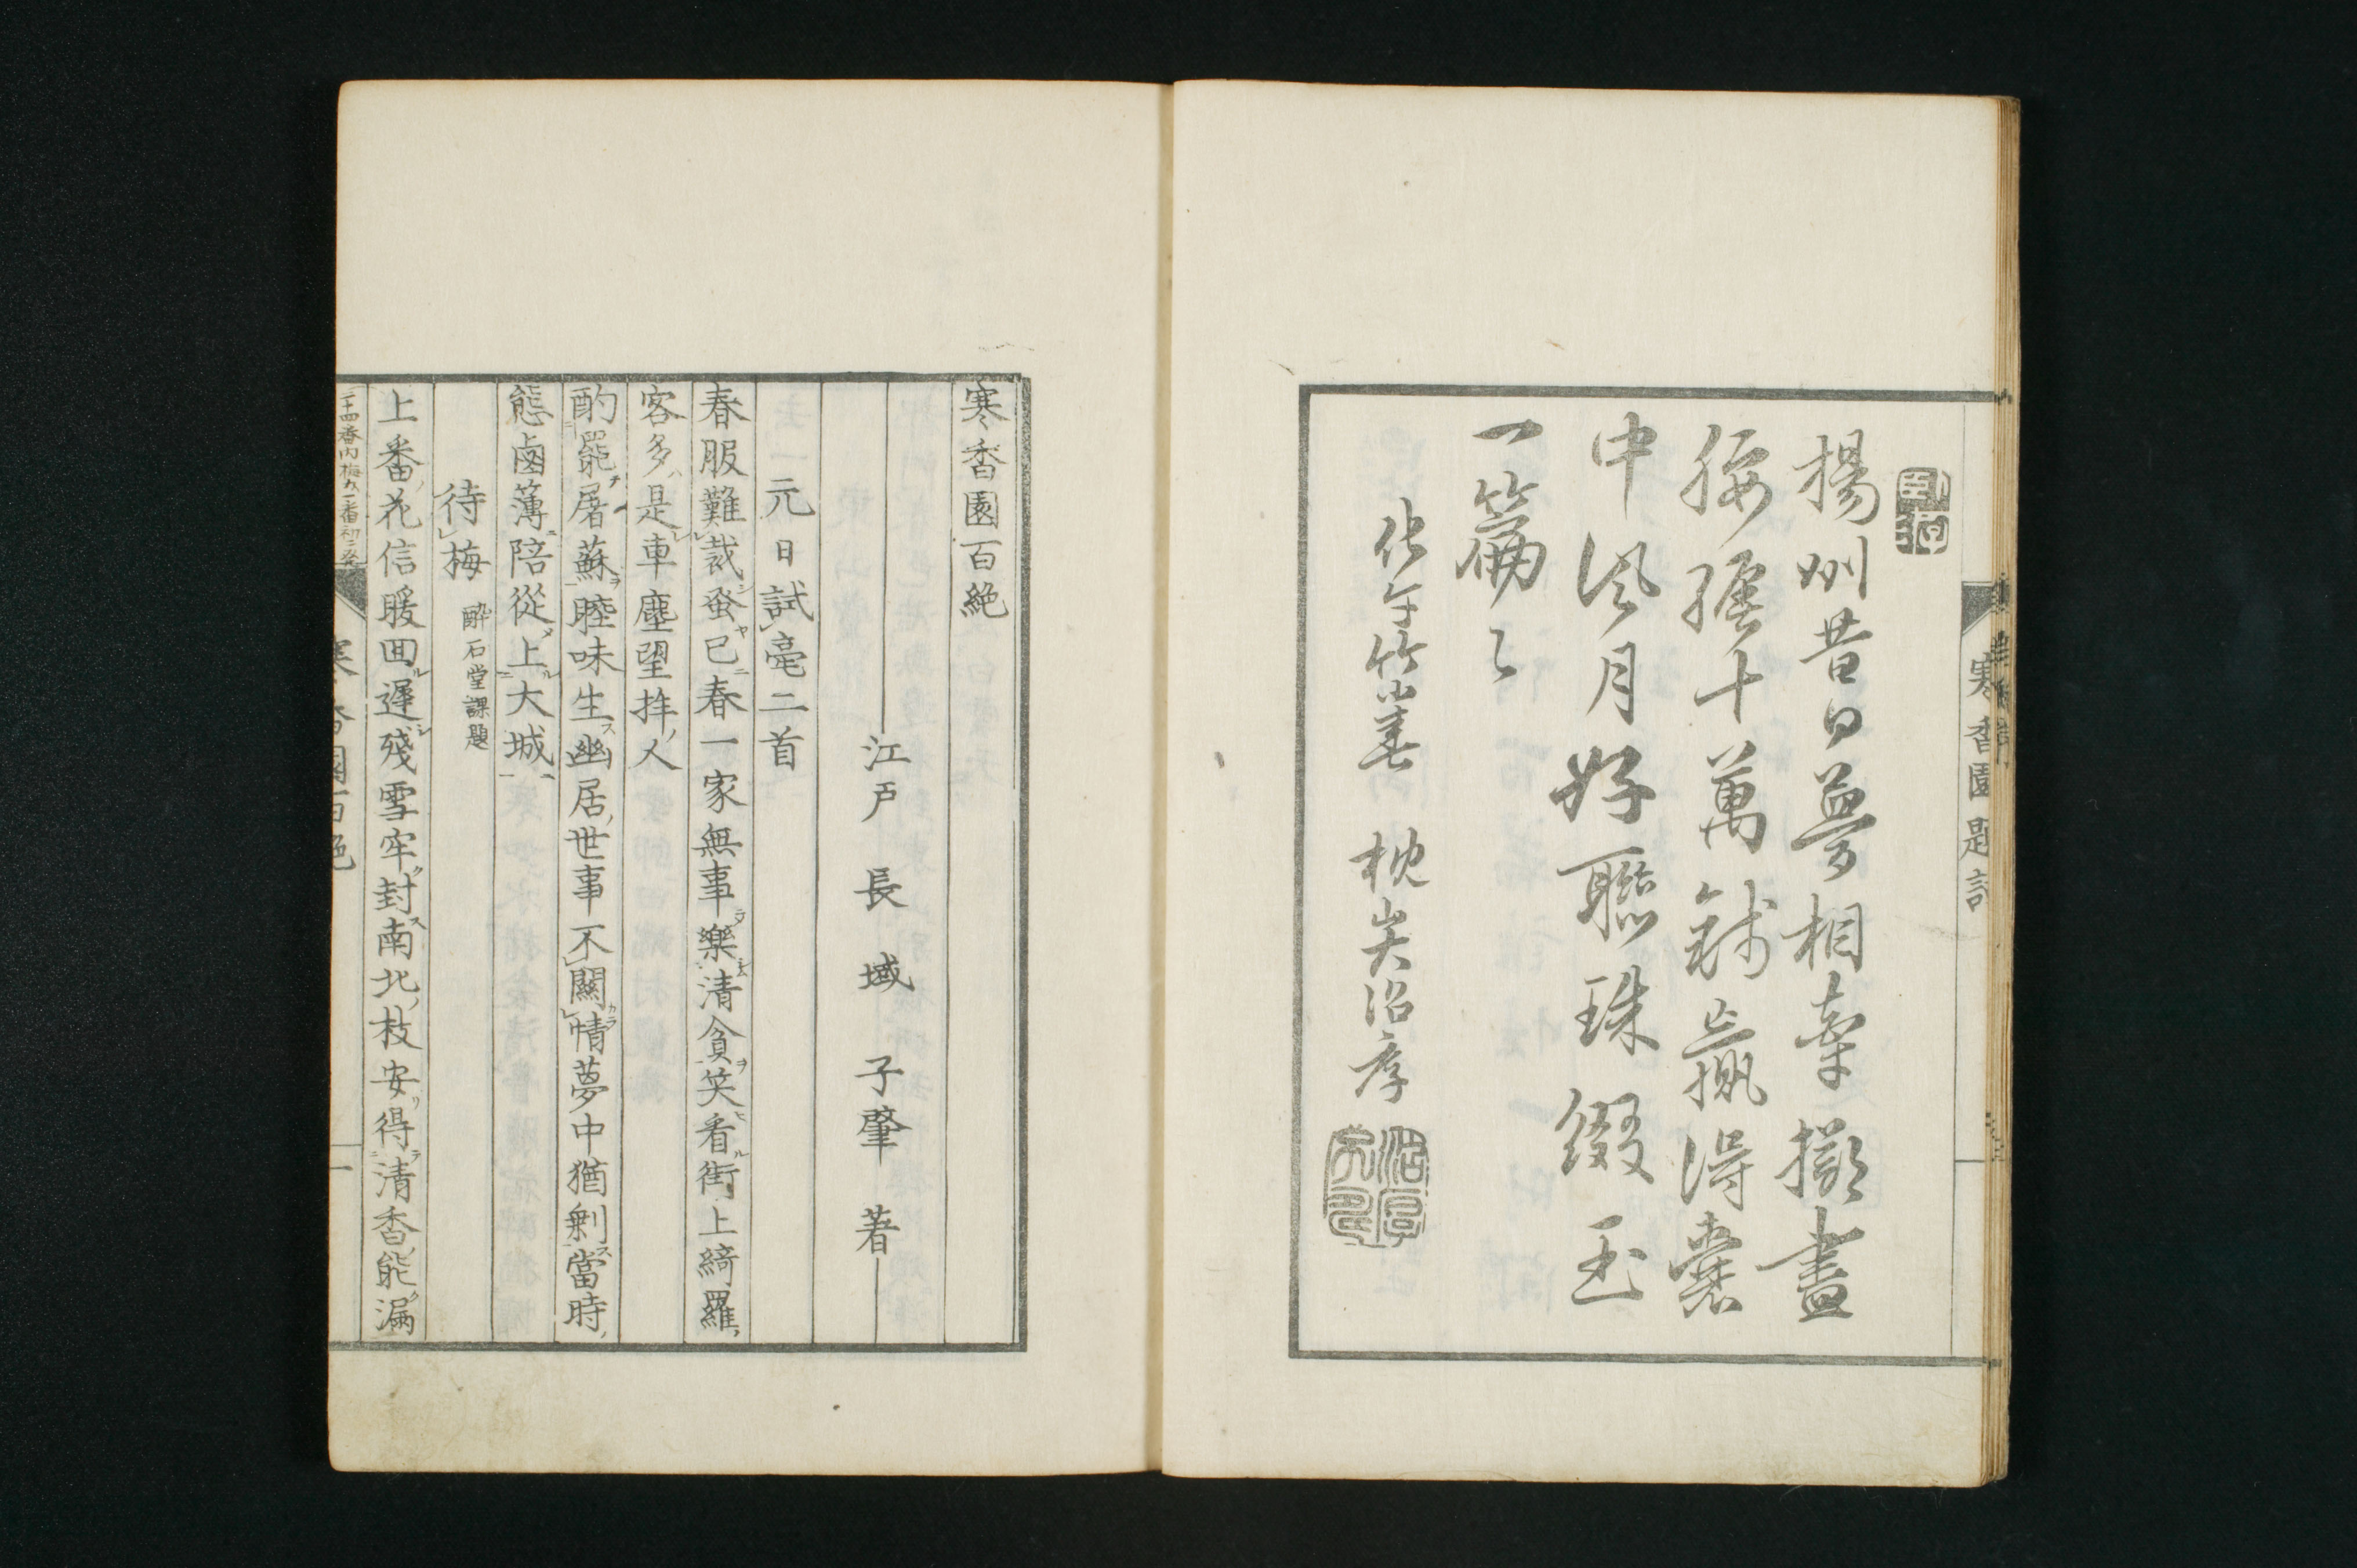 寒香園題詞
揚州昔日夢相牽擬盡
腰纏十萬錢贏得囊
中風月好聯珠綴玉
一篇々
寒香園百絶
江戸 長域子肇 著
元日試毫二首
春服難裁蚤已春一家無事樂清貧笑看街上綺羅
客多是車塵望拜人
酌罷屠蘇睦味生幽居世事不關情夢中猶剰當時
態鹵簿陪從上大城
待梅 酔石堂課題
上番花信暖囬遲殘雪牢封南北枝安得清香能漏
寒香園百絶
一